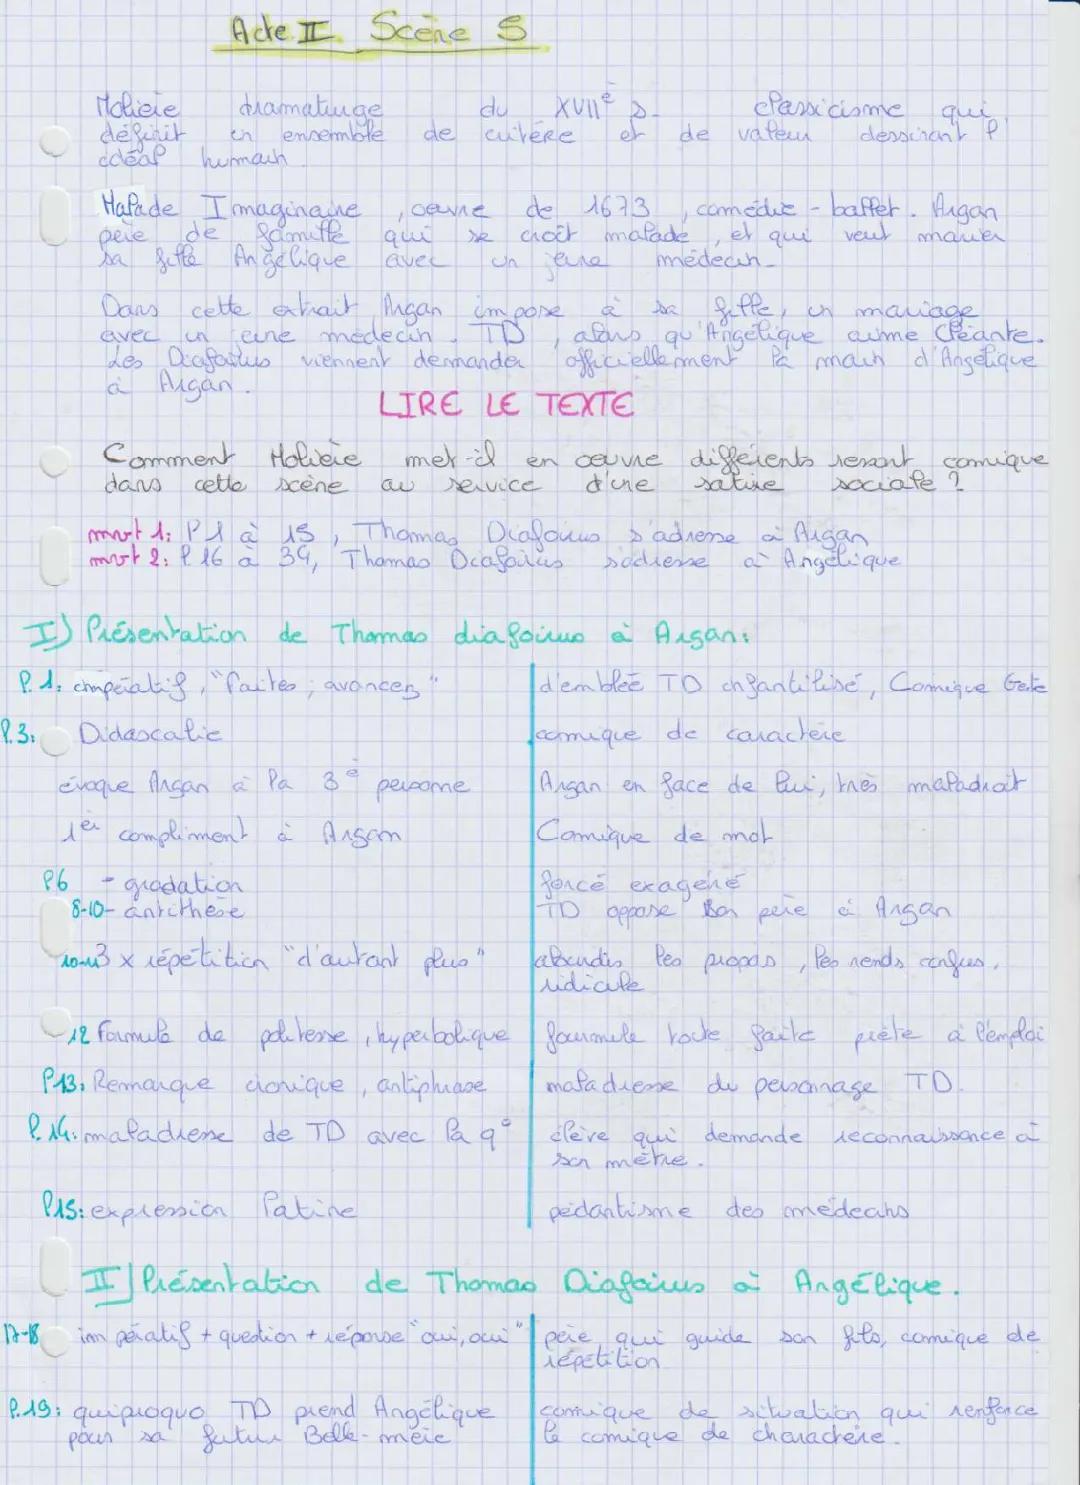 Acte II Scène 5
Molière dramaturge du XVIIe s. classicisme qui
définit un ensemble de critère et de valeur dessinant l'
idéal humain.
Malade Imaginaire, œuvre de 1673, comédie-ballet. Argan
père de famille qui se croit malade, et qui veut marier
sa fille Angélique avec un jeune médecin.
Dans cette extrait Argan impose à sa fille, un mariage
avec un jeune médecin. TD, alors qu'Angélique aime Cléante.
Les Diafoirus viennent demander officiellement la main d'Angélique
à Argan.
LIRE LE TEXTE
Comment Molière met-il en œuvre différents ressort comique
dans cette scène au service d'une satire sociale ?
mvt 1: l 1 à 15, Thomas Diafoirus s'adresse à Argan
mvt 2: l 16 à 34, Thomas Diafoirus s'adresse à Angélique
I) Présentation de Thomas diafoirus à Argan:
l. 1: impératif, "faites; avancez" d'emblée TD infantilisé, Comique Geste
l.3: Didascalie comique de caractère
évoque Argan à la 3e personne Argan en face de lui, très maladroit
1er compliment à Argan Comique de mot
l6 - gradation forcé exagéré
8-10- antithèse TD oppose son père à Argan
10-13 3 x répétition "d'autant plus" alourdis les propos, les rends confus,
ridicule
12 Formule de politesse, hyperbolique fourmule toute faite prête à l'emploi
l13: Remarque ironique, antiphrase maladresse du personnage TD.
l. 14: maladresse de TD avec la q° élève qui demande reconnaissance à
son mètre.
l15: expression latine pédantisme des médecins
II) Présentation de Thomas Diafoirus à Angélique.
17-18 impératif + question + réponse "oui, oui" père qui guide son fils, comique de
répétition
l.19: quiproquo TD prend Angélique comique de situation qui renforce
pour sa futur Belle-mère le comique de charactère.